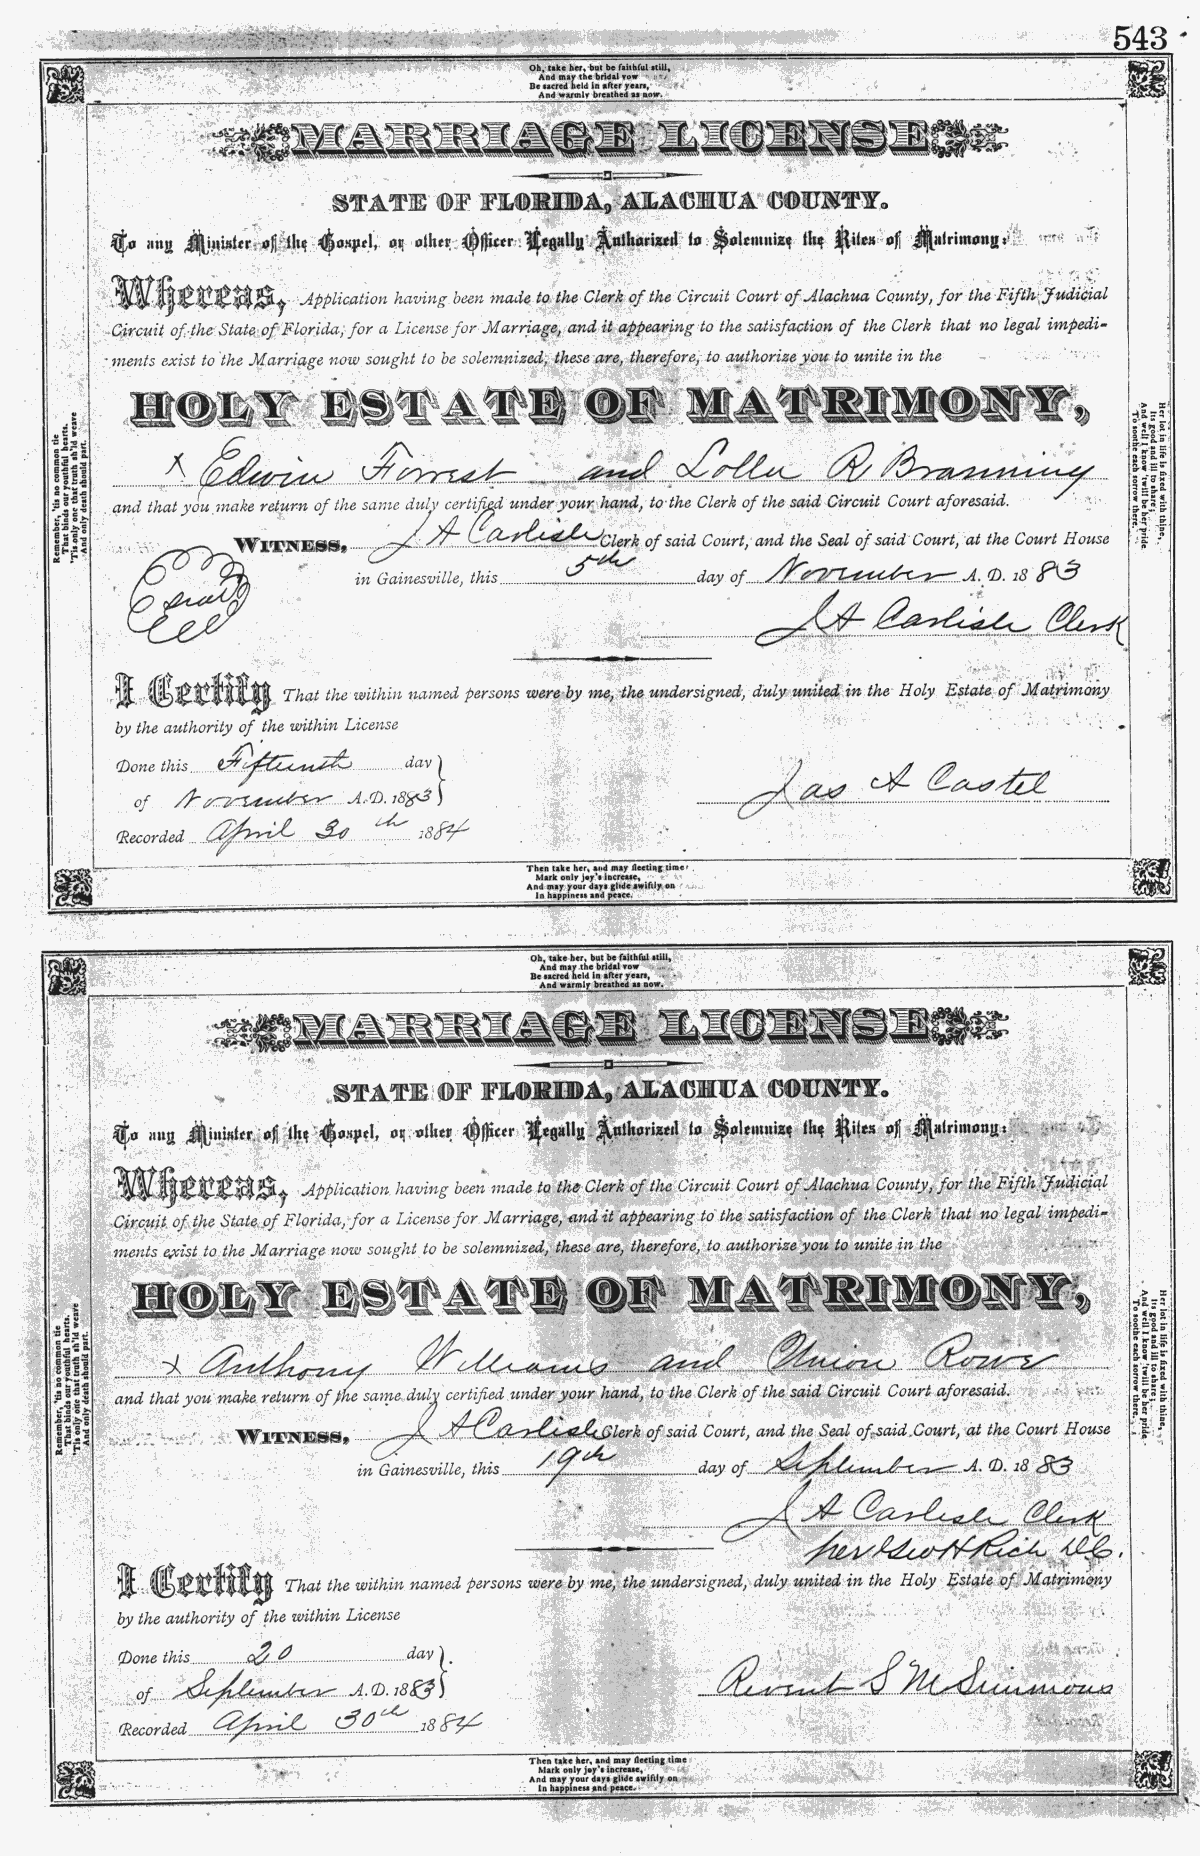 543
Oh, take her, but be faithful still,
And may the bridal vow
Be sacred held in after years,
And warmly breathed as now.
MARRIAGE LICENSE
STATE OF FLORIDA, ALACHUA COUNTY.
To any Minister of the Gospel, or other Officer Legally Authorized to Solemnize the Rites of Matrimony:
Whereas, Application having been made to the Clerk of the Circuit Court of Alachua County, for the Fifth Judicial
Circuit of the State of Florida, for a License for Marriage, and it appearing to the satisfaction of the Clerk that no legal impedi-
ments exist to the Marriage now sought to be solemnized, these are, therefore, to authorize you to unite in the
HOLY ESTATE OF MATRIMONY,
x Edwin Forrest and Lolla R. Branning
and that you make return of the same duly certified under your hand, to the Clerk of the said Circuit Court aforesaid.
WITNESS, J A Carlisle Clerk of said Court, and the Seal of said Court, at the Court House
in Gainesville, this 5th day of November A. D. 1883
Seal
J A Carlisle Clerk
I Certify That the within named persons were by me, the undersigned, duly united in the Holy Estate of Matrimony
by the authority of the within License
Done this Fifteenth day
of November A. D. 1883
Jas A Castel
Recorded April 30th 1884
Remember, 'tis no common tie
That binds our youthful hearts.
'Tis only one that truth sh'ld weave
And only death should part.
Her lot in life is fixed with thine,
Its good and ill to share;
And well I know 'twill be her pride
To soothe each sorrow there.
Then take her, and may fleeting time
Mark only joy's increase,
And may your days glide swiftly on
In happiness and peace.
Oh, take her, but be faithful still,
And may the bridal vow
Be sacred held in after years,
And warmly breathed as now.
MARRIAGE LICENSE
STATE OF FLORIDA, ALACHUA COUNTY.
To any Minister of the Gospel, or other Officer Legally Authorized to Solemnize the Rites of Matrimony:
Whereas, Application having been made to the Clerk of the Circuit Court of Alachua County, for the Fifth Judicial
Circuit of the State of Florida, for a License for Marriage, and it appearing to the satisfaction of the Clerk that no legal impedi-
ments exist to the Marriage now sought to be solemnized, these are, therefore, to authorize you to unite in the
HOLY ESTATE OF MATRIMONY,
x Anthony Williams and Union Rowe
and that you make return of the same duly certified under your hand, to the Clerk of the said Circuit Court aforesaid.
WITNESS, J A Carlisle Clerk of said Court, and the Seal of said Court, at the Court House
in Gainesville, this 19th day of September A. D. 1883
J A Carlisle Clerk
per Geo H Rich D.C.
I Certify That the within named persons were by me, the undersigned, duly united in the Holy Estate of Matrimony
by the authority of the within License
Done this 20 day
of September A. D. 1883
Revent S M Simmons
Recorded April 30th 1884
Remember, 'tis no common tie
That binds our youthful hearts.
'Tis only one that truth sh'ld weave
And only death should part.
Her lot in life is fixed with thine,
Its good and ill to share;
And well I know 'twill be her pride
To soothe each sorrow there.
Then take her, and may fleeting time
Mark only joy's increase,
And may your days glide swiftly on
In happiness and peace.